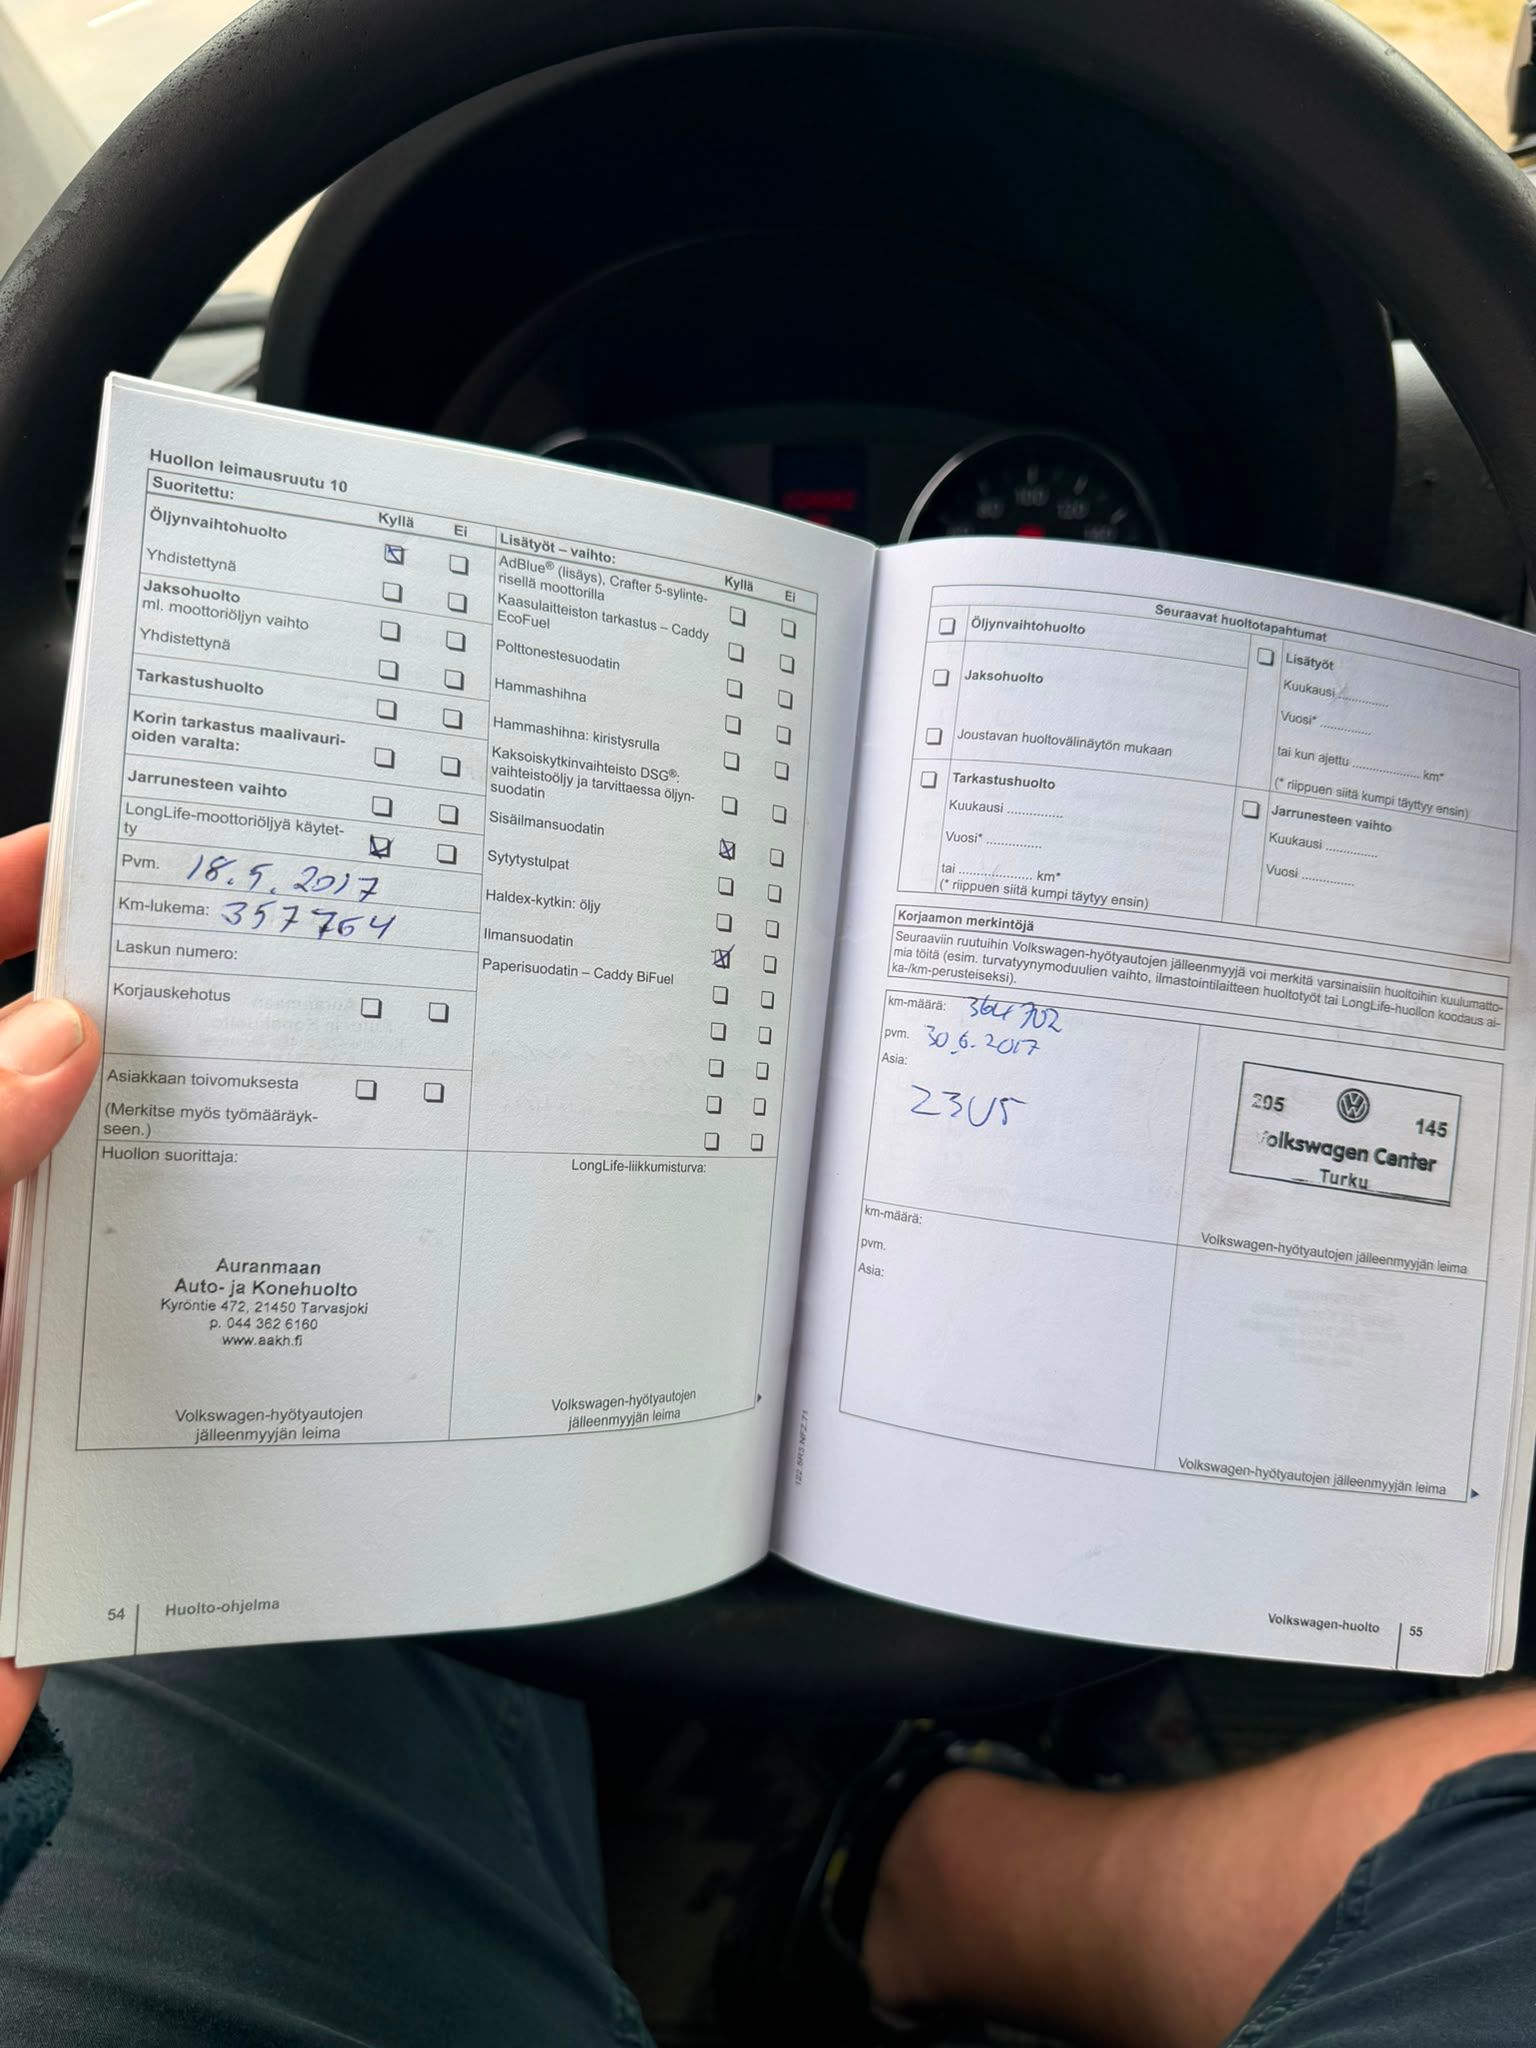 Huollon leimausruutu 10
Suoritettu:
Kyllä
Ei
Öljynvaihtohuolto
Yhdistettynä
Jaksohuolto
ml. moottoriöljyn vaihto
Yhdistettynä
Tarkastushuolto
Korin tarkastus maalivauri-
oiden varalta:
Jarrunesteen vaihto
LongLife-moottoriöljyä käytet-
ty
Pvm. 18.5.2017
Km-lukema: 357764
Laskun numero:
Korjauskehotus
Asiakkaan toivomuksesta
(Merkitse myös työmääräyk-
seen.)
Huollon suorittaja:
Auranmaan
Auto- ja Konehuolto
Kyröntie 472, 21450 Tarvasjoki
p. 044 362 6160
www.aakh.fi
Volkswagen-hyötyautojen
jälleenmyyjän leima
Lisätyöt – vaihto:
Kyllä
Ei
AdBlue® (lisäys), Crafter 5-sylinte-
risellä moottorilla
Kaasulaitteiston tarkastus – Caddy
EcoFuel
Polttonestesuodatin
Hammashihna
Hammashihna: kiristysrulla
Kaksoiskytkinvaihteisto DSG®:
vaihteistoöljy ja tarvittaessa öljyn-
suodatin
Sisäilmansuodatin
Sytytystulpat
Haldex-kytkin: öljy
Ilmansuodatin
Paperisuodatin – Caddy BiFuel
LongLife-liikkumisturva:
Volkswagen-hyötyautojen
jälleenmyyjän leima
54
Huolto-ohjelma
Seuraavat huoltotapahtumat
Öljynvaihtohuolto
Jaksohuolto
Joustavan huoltovälinäytön mukaan
Tarkastushuolto
Kuukausi ..............
Vuosi* ..............
tai .................. km*
(* riippuen siitä kumpi täytyy ensin)
Lisätyöt
Kuukausi ............
Vuosi* ............
tai kun ajettu ................. km*
(* riippuen siitä kumpi täyttyy ensin)
Jarrunesteen vaihto
Kuukausi .............
Vuosi .............
Korjaamon merkintöjä
Seuraaviin ruutuihin Volkswagen-hyötyautojen jälleenmyyjä voi merkitä varsinaisiin huoltoihin kuulumatto-
mia töitä (esim. turvatyynymoduulien vaihto, ilmastointilaitteen huoltotyöt tai LongLife-huollon koodaus ai-
ka-/km-perusteiseksi).
km-määrä: 364702
pvm. 30.6.2017
Asia:
23U5
205
145
Volkswagen Center
Turku
Volkswagen-hyötyautojen jälleenmyyjän leima
km-määrä:
pvm.
Asia:
Volkswagen-hyötyautojen jälleenmyyjän leima
122.5R3.NFZ.71
Volkswagen-huolto
55
80
100
120